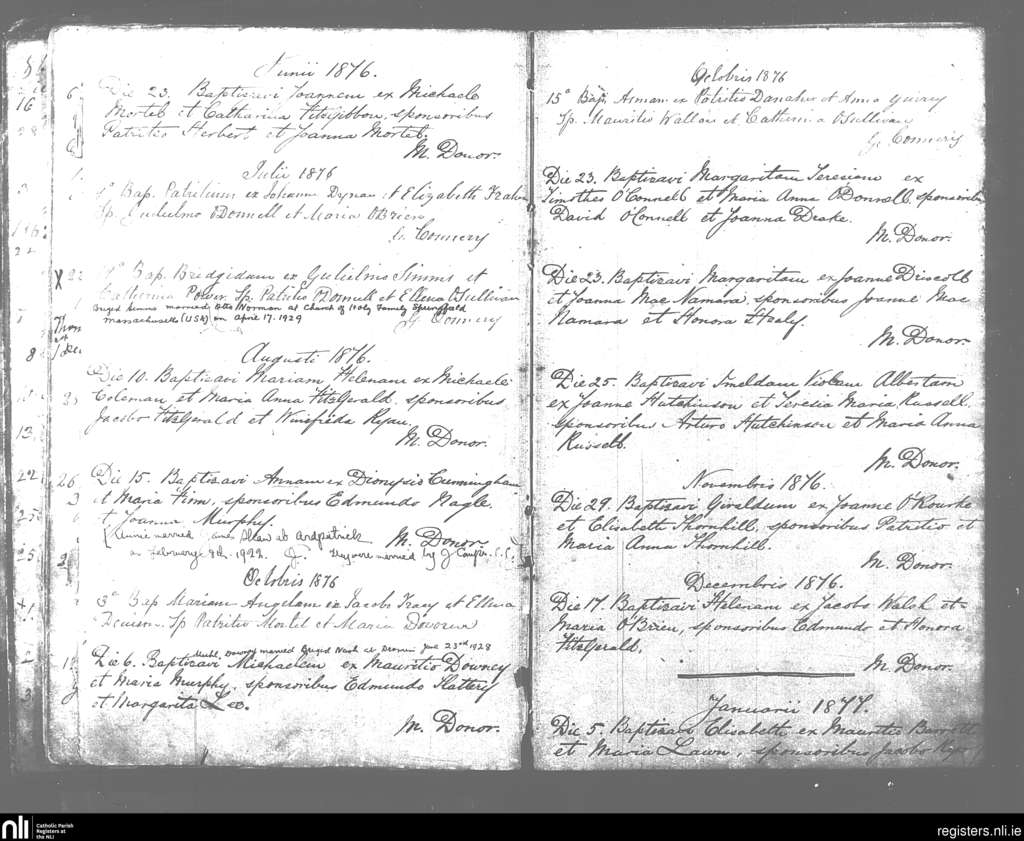 Junii 1876.
Die 23. Baptizavi Joannem ex Michaele
Mortel et Catharina Fitzgibbon, sponsoribus
Patritio Herbert et Joanna Mortel.
M. Donor.
Julii 1876
Bap. Patritium ex Johanne Dynan et Elizabeth
Sp. Gulielmo ODonnell et Maria OBrien
G. Connery
Bap. Bridgidam ex Gulielmo Simms et
Catherina Power Sp. Patritio ODonnell et Ellena OSullivan
Briged Simms married Otto Worman at Church of Holy Family Springfield
Massachusetts (USA) on April 17. 1929
G. Connery
Augusti 1876.
Die 10. Baptizavi Mariam Helenam ex Michaele
Coleman et Maria Anna FitzGerald, sponsoribus
Jacobo FitzGerald et Winifrida Ryan.
M. Donor.
Die 15. Baptizavi Annam ex Dionysio Cunningham
et Maria Finn, sponsoribus Edmundo Nagle
et Joanna Murphy.
M. Donor.
Annie married Shaw at Ardpatrick
on February 9th. 1922. They were married by J Cowper. C.C.
Octobris 1876
3° Bap Mariam Angelam ex Jacobo Tracy et Ellena
Sp Patritio Mortel et Maria
Michl. Downey married Briged Nash at June 23rd 1928
Die 6. Baptizavi Michaelem ex Mauritio Downey
et Maria Murphy, sponsoribus Edmundo Slattery
et Margarita Lee.
M. Donor.
Octobris 1876
15° Bap. Annam ex Patritio Danaher et Anna
Sp. Mauritio Wallan et Catherina OSullivan
G. Connery
Die 23. Baptizavi Margaritam Teresiam ex
Timotheo O'Connell et Maria Anna O'Donnell, sponsoribus
David O'Connell et Joanna Drake.
M. Donor.
Die 23. Baptizavi Margaritam ex Joanne Driscoll
et Joanna Mac Namara, sponsoribus Joanne Mac
Namara et Honora Healy.
M. Donor.
Die 25. Baptizavi Imeldam Violam Albertam
ex Joanne Hutchinson et Teresia Maria Russell.
sponsoribus Arturo Hutchinson et Maria Anna
Russell.
M. Donor.
Novembris 1876.
Die 29. Baptizavi Giraldum ex Joanne O'Rourke
et Elisabeth Thornhill, sponsoribus Patritio et
Maria Anna Thornhill.
M. Donor.
Decembris 1876.
Die 17. Baptizavi Helenam ex Jacobo Walsh et
Maria O'Brien, sponsoribus Edmundo et Honora
FitzGerald.
M. Donor.
Januarii 1877.
Die 5. Baptizavi Elisabeth ex Mauritio Barrett
et Maria Lawn, sponsoribus Jacobo
nli Catholic Parish Registers at the NLI
registers.nli.ie